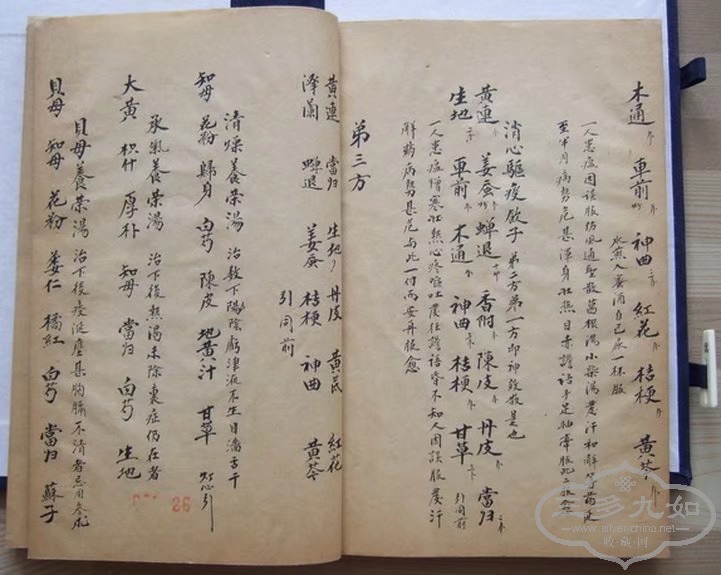 木通 車前 神曲 紅花 桔梗 黃芩
水煎入薑消自己尿一杯服
一人患疫因誤服防風通聖散葛根湯小柴湯發汗和解等葯延
至半月病勢危甚渾身壯熱目赤譫語手足抽牽服此二服愈
消心驅疫飲子 第二方第一方即神效散是也
黃連 姜蚕 蟬退 香附 陳皮 丹皮 當归
生地 車前 木通 神曲 桔梗 甘草 引同前
一人患疫憎寒壯熱心疼嘔吐發狂譫語昏不知人因誤服發汗
解葯病勢甚危与此一付而安再服愈
第三方
黃連 當归 生地 丹皮 黃芪 紅花
澤蘭 蟬退 姜蚕 桔梗 神曲 黃芩
引同前
清燥養榮湯 治数下陽陰虧津液不生目澀舌干
知母 花粉 歸身 白芍 陳皮 地黃汁 甘草 灯心引
承氣養榮湯 治下後熱渴未除裏症仍在者
大黃 枳什 厚朴 知母 當归 白芍 生地
貝母養榮湯 治下後痰涎壅甚胸膈不清者忌用参朮
貝母 知母 花粉 蔞仁 橘紅 白芍 當归 蘇子
26
三多九如
www.lsfyerchina.net
收藏网